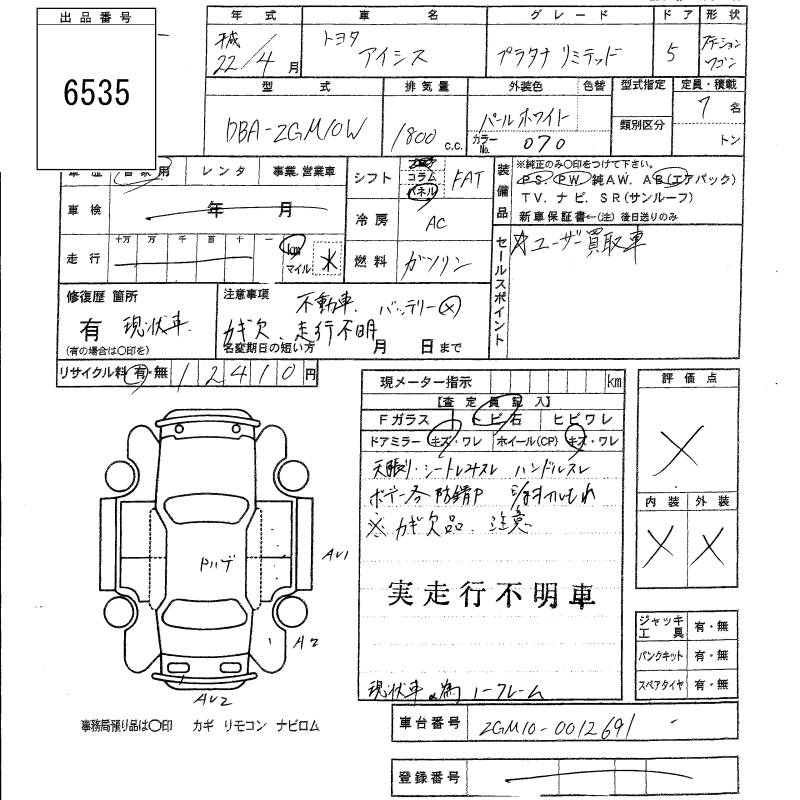 出品番号
6535
年式 車名 グレード ドア 形状
平成 22/4月 トヨタ アイシス プラタナリミテッド 5 ステーションワゴン
型式 排気量 外装色 色替 型式指定 定員・積載
DBA-ZGM10W 1800 c.c. パールホワイト 類別区分 7名
カラーNo. 070 トン
車歴 自家用 レンタ 事業.営業車 シフト コラム パネル FAT
装備品 ※純正のみ〇印をつけて下さい。
PS. PW. 純AW. AB(エアバック)
TV. ナビ. SR(サンルーフ)
新車保証書←(注) 後日送りのみ
車検 年 月 冷房 AC
走行 十万 万 千 百 十 一 km マイル 燃料 ガソリン
セールスポイント ユーザー買取車
修復歴 箇所 注意事項 不動車. バッテリー×
有 現状車. カギ欠. 走行不明
(有の場合は〇印を) 名変期日の短い方 月 日まで
リサイクル料 有・無 12410円
現メーター指示 km
評価点
【査定員記入】
Fガラス トビ石 ヒビワレ
ドアミラー キズ・ワレ ホイール(CP) キズ・ワレ
天張り・シートレスレ ハンドルスレ
ボデー 防錆P オイルもれ
※カギ欠品. 注意
内装 外装
Pハゲ
AU1
A2
AU2
実走行不明車
現状車の為ノークレーム
ジャッキ工具 有・無
パンクキット 有・無
スペアタイヤ 有・無
事務局預り品は〇印 カギ リモコン ナビロム
車台番号 ZGM10-0012691
登録番号